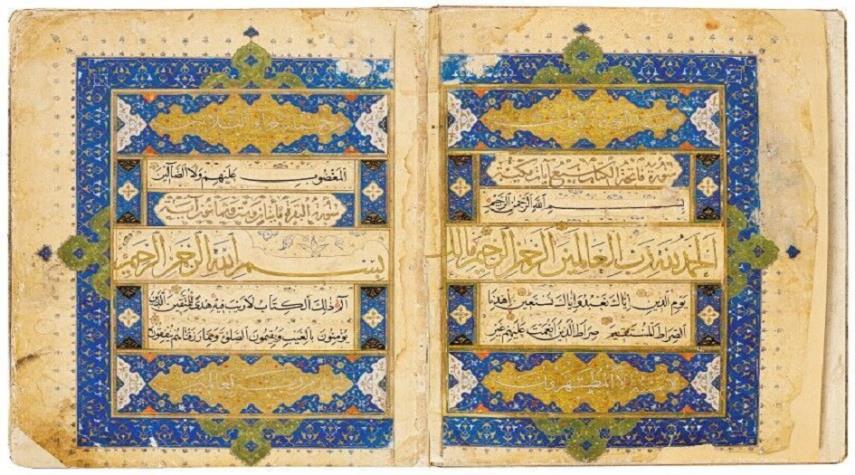 سورة فاتحة الكتاب سبع آيات مكية
بسم الله الرحمن الرحيم
الحمد لله رب العالمين الرحمن الرحيم ملك
يوم الدين إياك نعبد وإياك نستعين اهدنا
الصراط المستقيم صراط الذين أنعمت عليهم غير
لا المطهرون
المغضوب عليهم ولا الضالين
سورة البقرة مائتان وست وثمانون آية
بسم الله الرحمن الرحيم
الم ذلك الكتاب لا ريب فيه هدى للمتقين الذين
يؤمنون بالغيب ويقيمون الصلوة ومما رزقناهم ينفقون
من رب العالمين